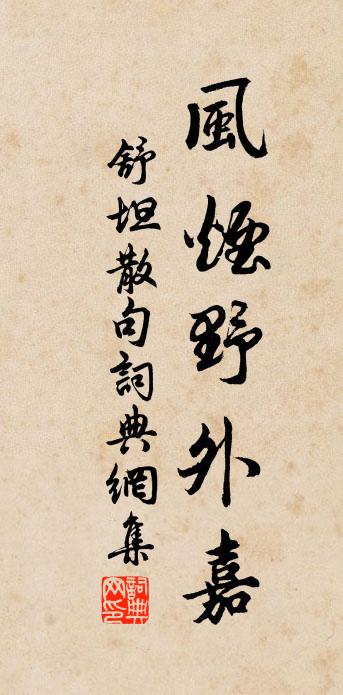 風煙野外嘉
舒坦散句詞典網集
詞典网印